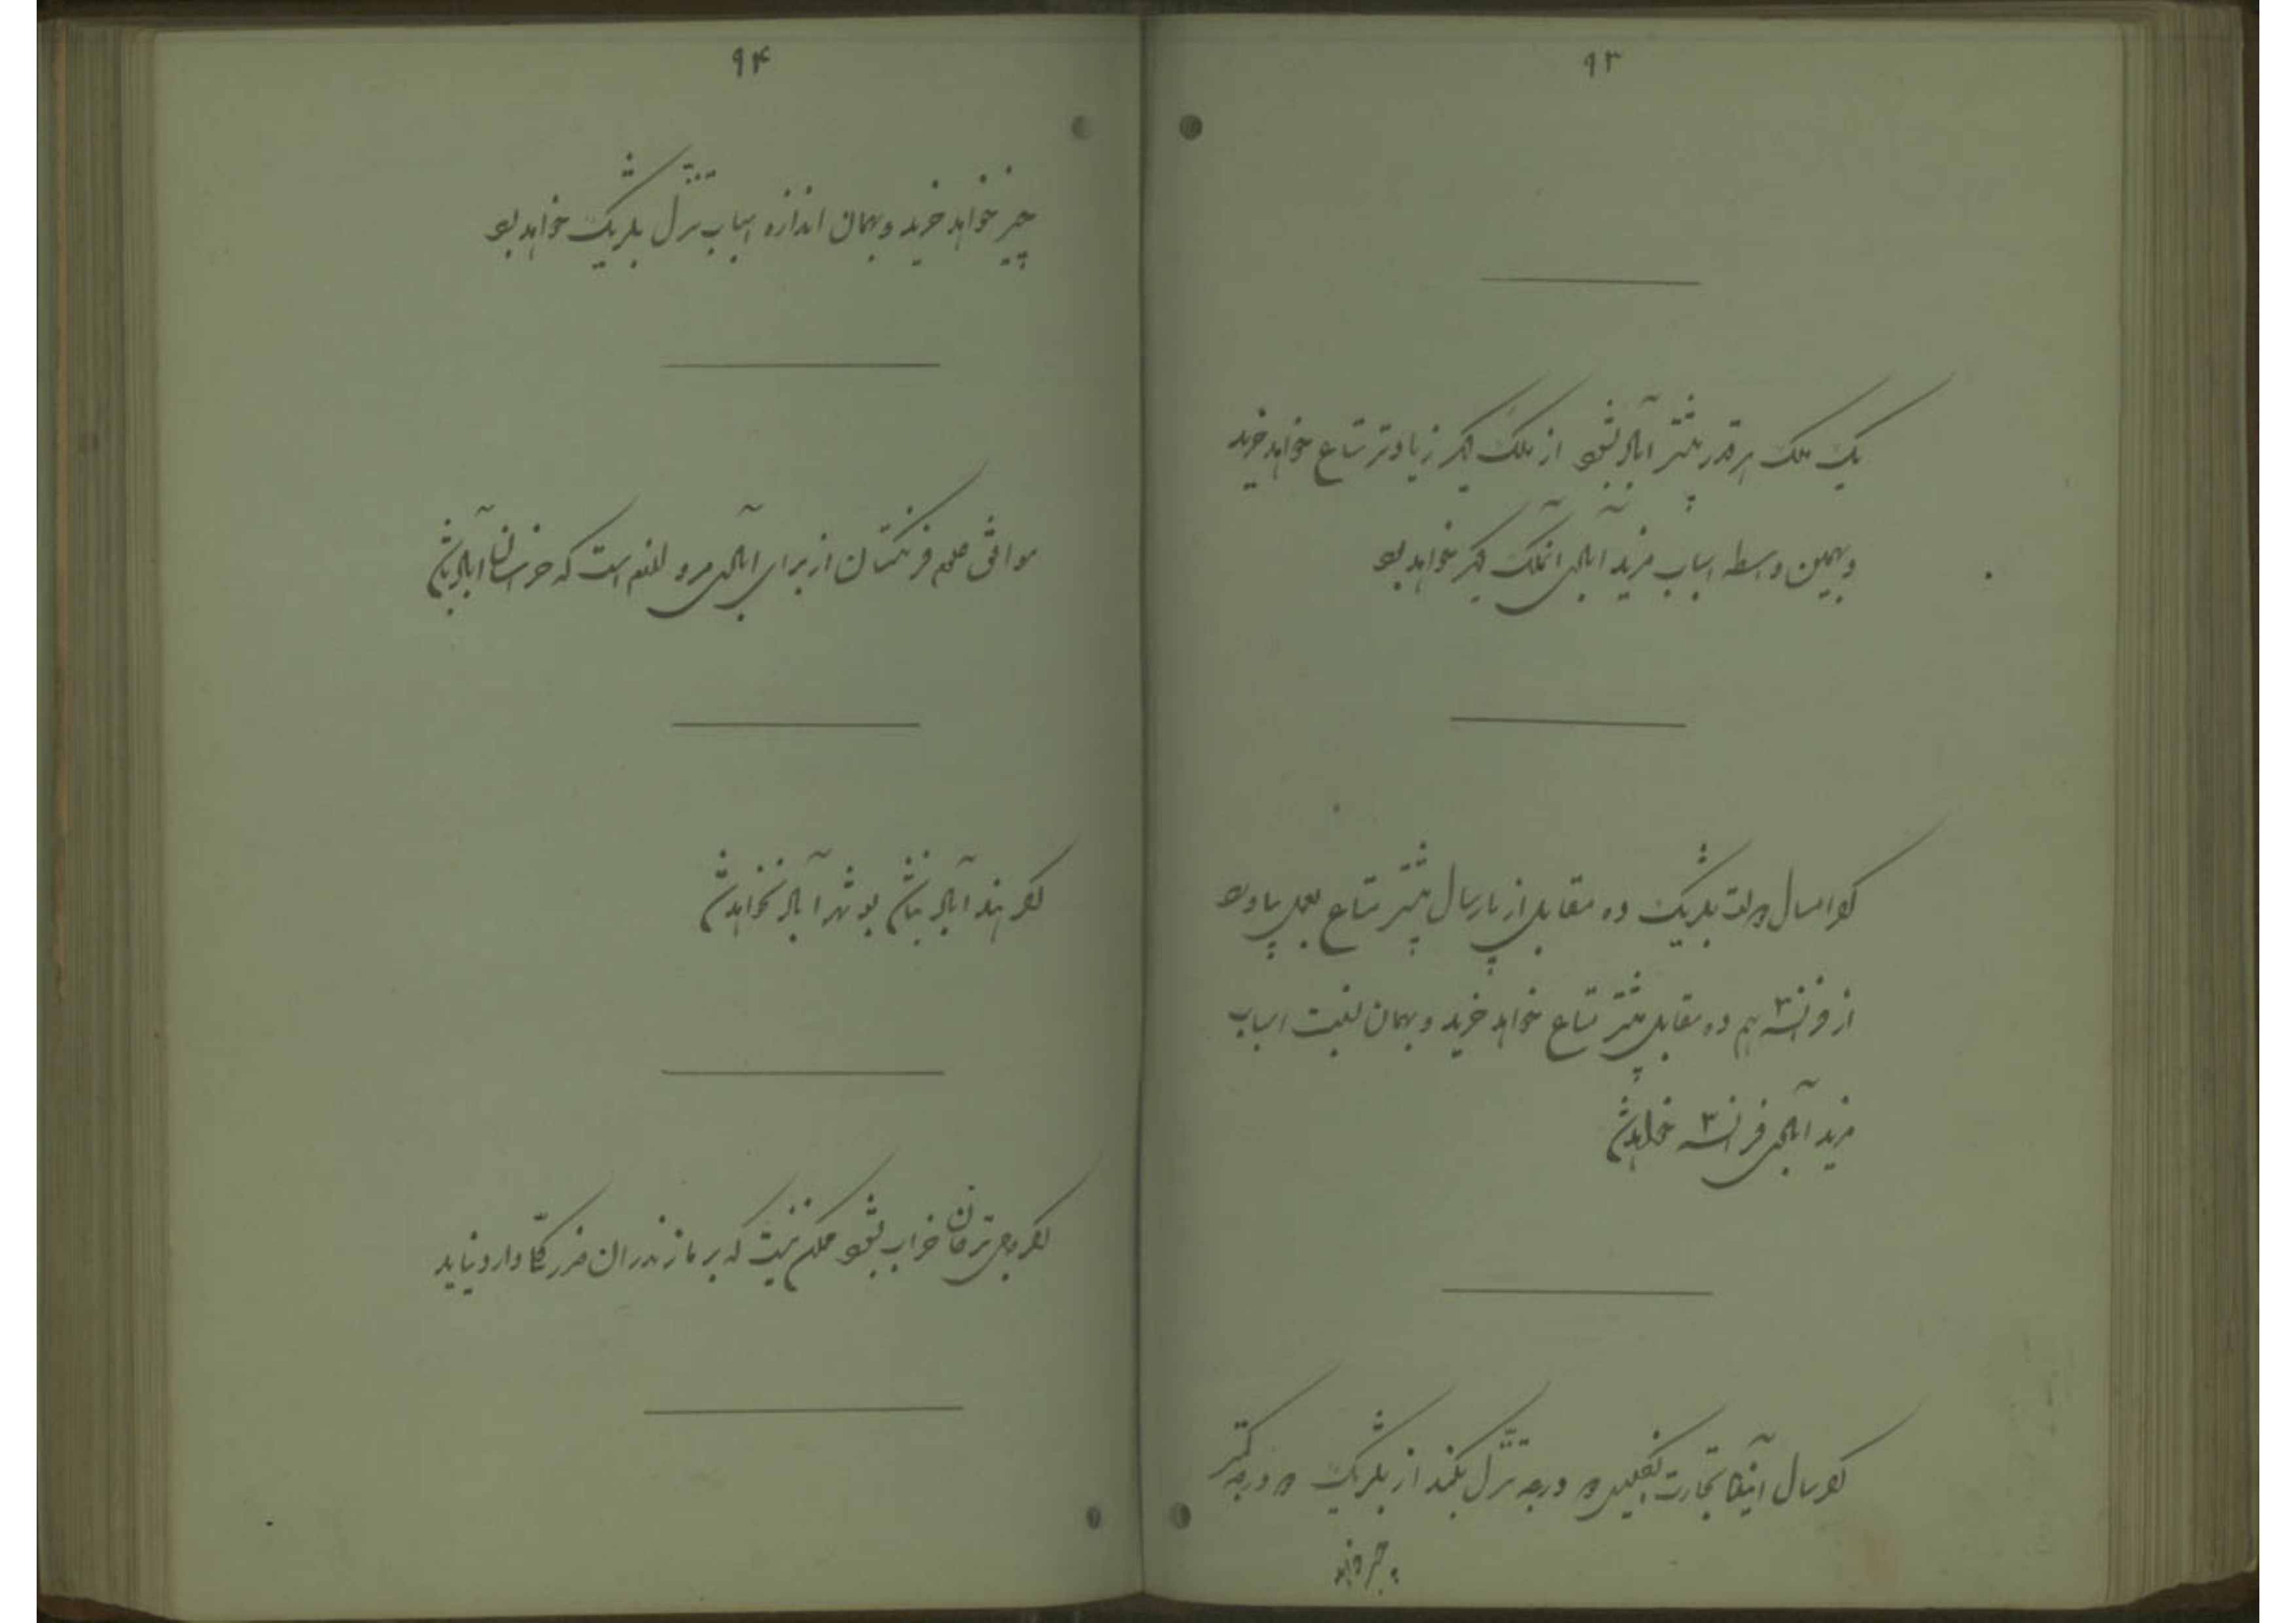 ۹۳
یک ملک هر قدر بیشتر آباد بشود از ملک دیگر زیادتر متاع خواهد خرید
و بهمین واسطه اسباب مزید آبادی آنملک دیگر خواهد بود
اگر امسال دولت بلژیک ده مقابل از پارسال بیشتر متاع بعمل بیاورد
از فرانسه هم ده مقابل بیشتر متاع خواهد خرید و بهمان نسبت اسباب
مزید آبادی فرانسه خواهد شد
اگر سال آینده تجارت انگلیس ده درجه تنزل بکند از بلژیک ده درجه کمتر
چیز خواهد
۹۴
چیز خواهد خرید و بهمان اندازه اسباب تنزل بلژیک خواهد بود
موافق علوم فرنگستان از برای آبادی مرو لازم است که خراسان آباد باشد
اگر هند آباد نباشد بوشهر آباد نخواهد شد
اگر حاجی ترخان خراب بشود ممکن نیست که بر مازندران ضرر کلی وارد نیاید